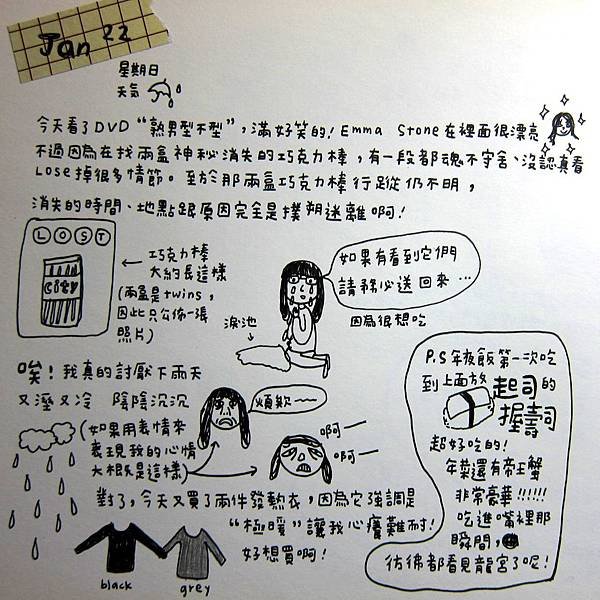 Jan 22
星期日
天氣
今天看了DVD“熟男型不型”，滿好笑的！Emma Stone在裡面很漂亮
不過因為在找兩盒神秘消失的巧克力棒，有一段都魂不守舍、沒認真看
Lose掉很多情節。至於那兩盒巧克力棒行蹤仍不明，
消失的時間、地點跟原因完全是撲朔迷離啊！
LOST
city
← 巧克力棒
大約長這樣
(兩盒是twins，
因此只公佈一張
照片)
淚池
如果有看到它們
請務必送回來…
因為很想吃
唉！我真的討厭下雨天
又溼又冷 陰陰沉沉
(如果用表情來
表現我的心情
大概是這樣)
煩欸~~
啊—
啊—
對了，今天又買了兩件發熱衣，因為它強調是
“極暖”讓我心癢難耐！
好想買啊！
black
grey
P.S年夜飯第一次吃
到上面放起司的
握壽司
超好吃的！
年菜還有帝王蟹
非常豪華!!!!!!
吃進嘴裡那
瞬間，
彷彿都看見龍宮了呢！